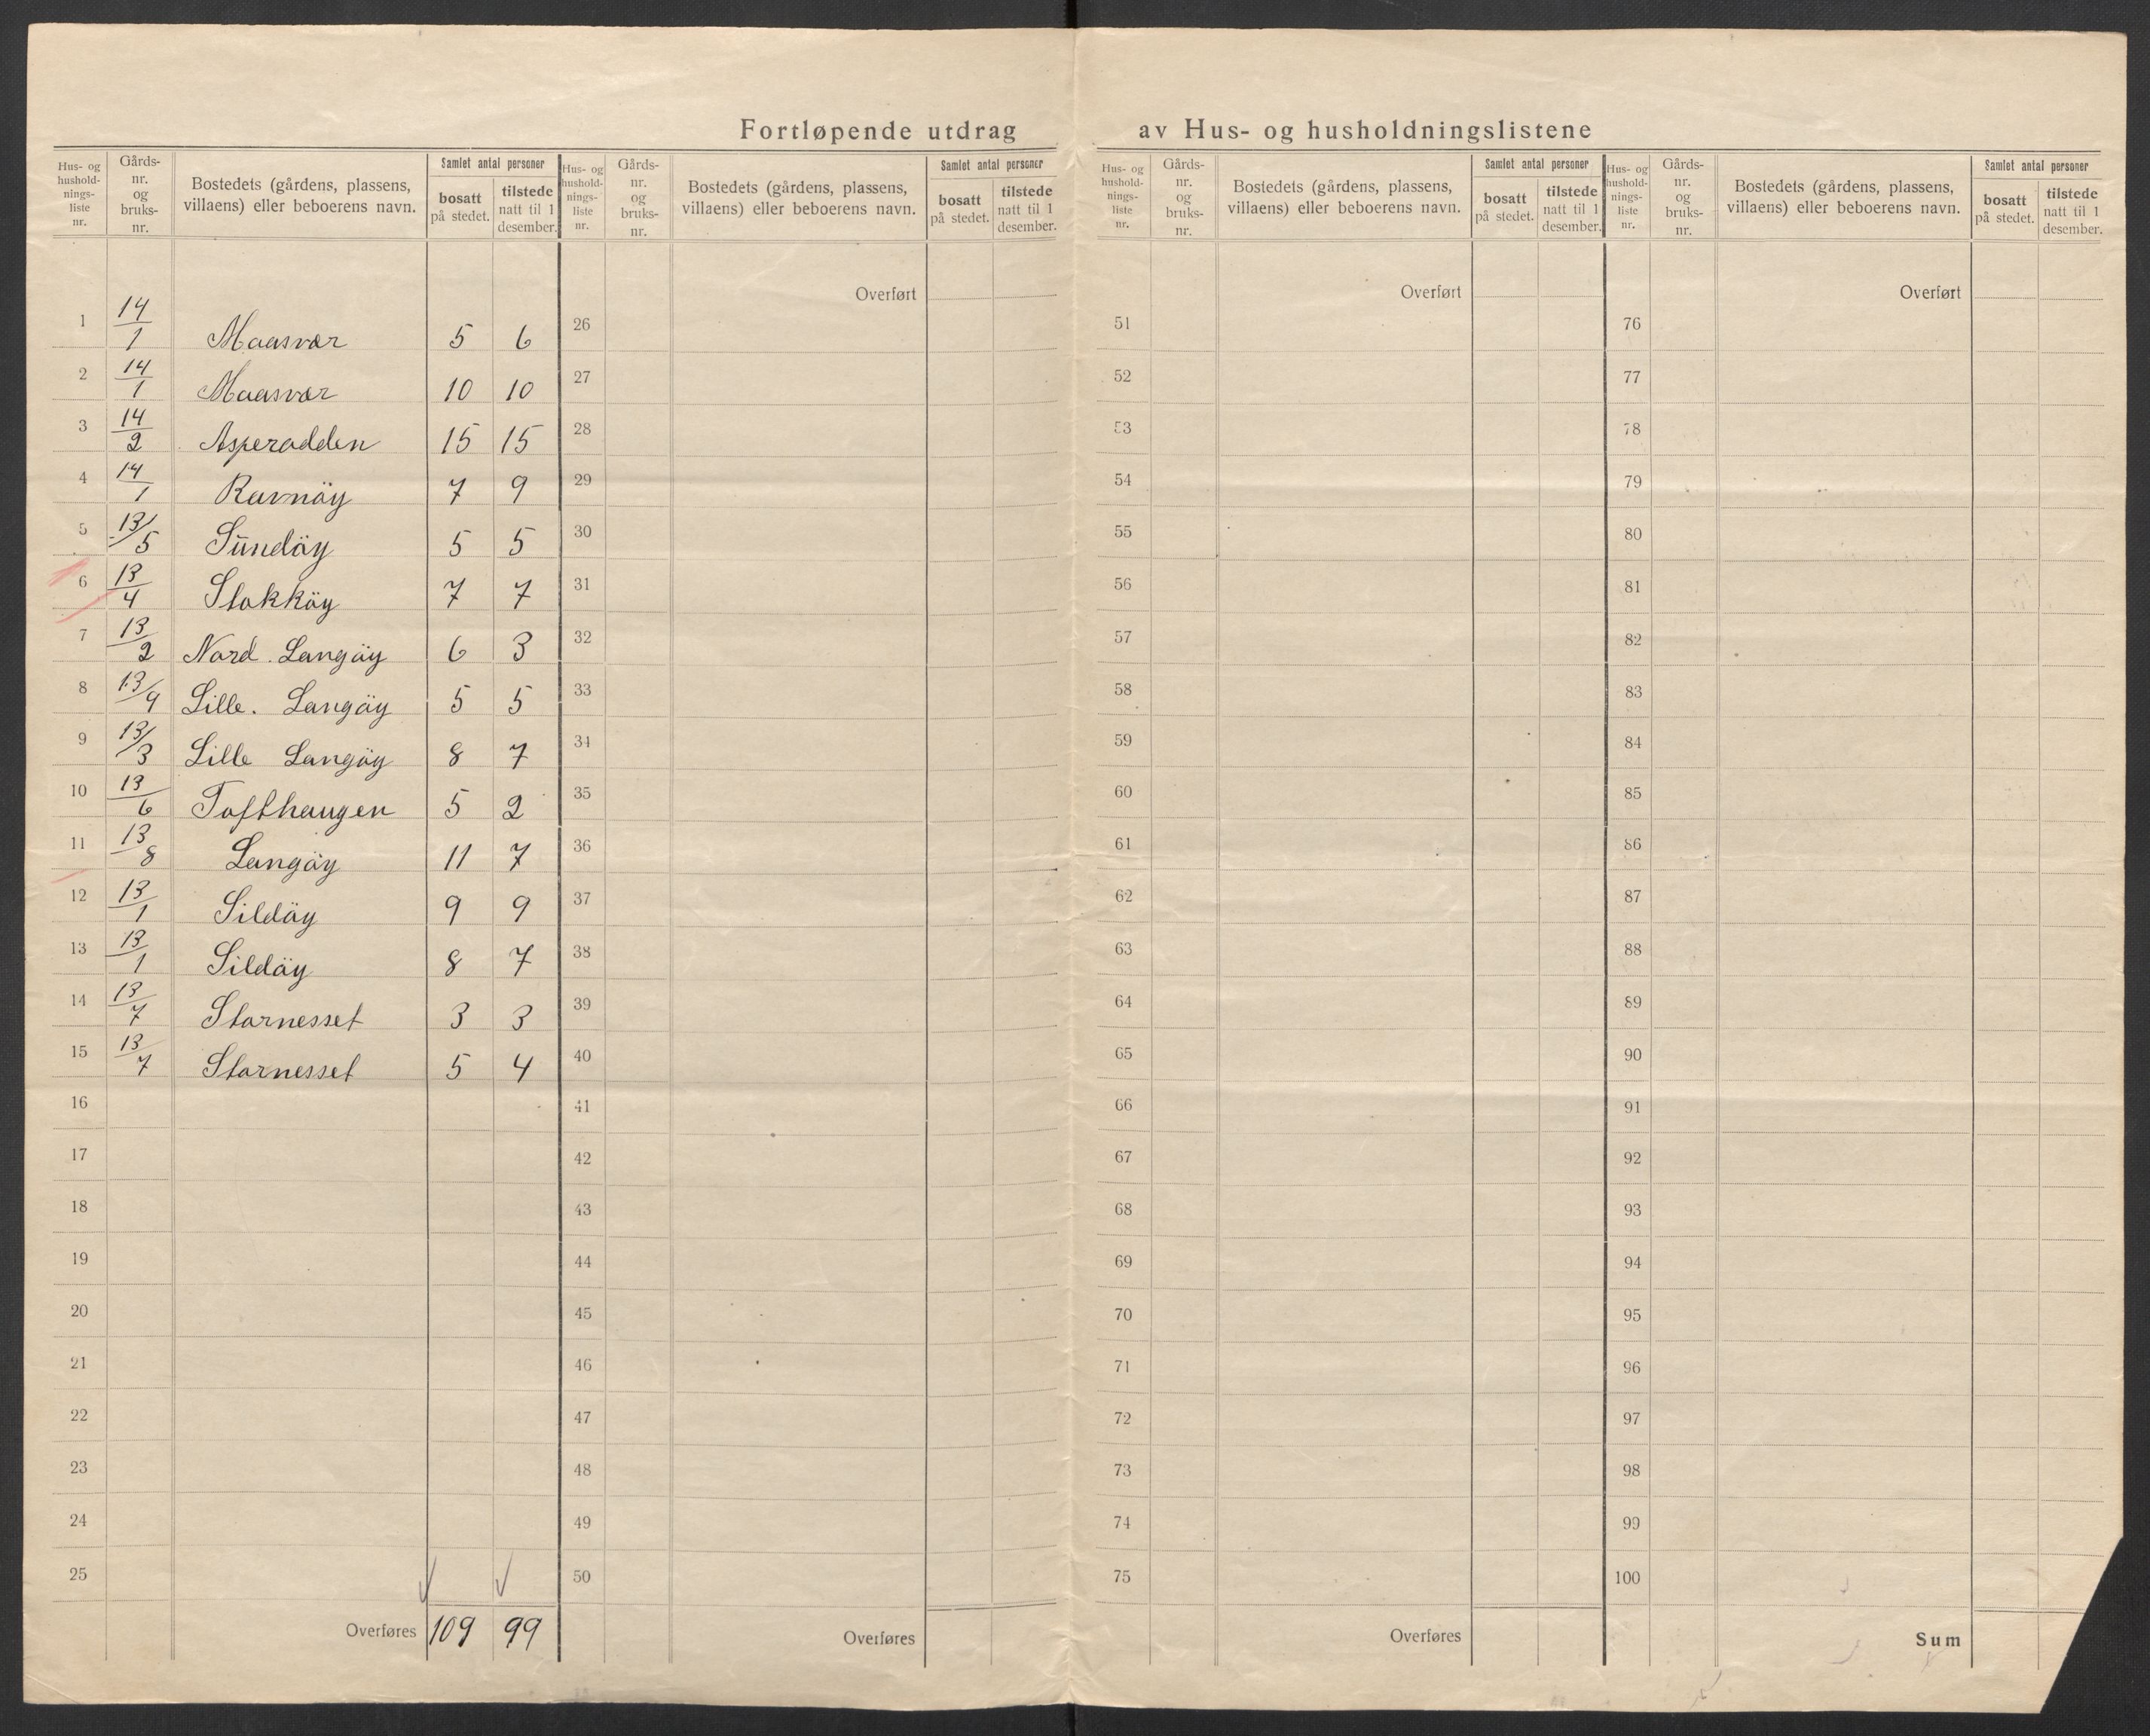 Fortløpende utdrag av Hus- og husholdningslistene
Hus- og hushold-nings-liste nr. | Gårds-nr. og bruks-nr. | Bostedets (gårdens, plassens, villaens) eller beboerens navn. | Samlet antal personer | bosatt på stedet. | tilstede natt til 1 desember.
1 14/1 Maasvær 5 6
2 14/1 Maasvær 10 10
3 14/2 Asperodden 15 15
4 14/1 Ravnöy 7 9
5 13/5 Sūndöy 5 5
6 13/4 Stokköy 7 7
7 13/2 Nord. Langöy 6 3
8 13/9 Lille. Langöy 5 5
9 13/3 Lille Langöy 8 7
10 13/6 Tofthaugen 5 2
11 13/8 Langöy 11 7
12 13/1 Sildöy 9 9
13 13/1 Sildöy 8 7
14 13/7 Stornesset 3 3
15 13/7 Stornesset 5 4
16
17
18
19
20
21
22
23
24
25
Overføres 109 99
Hus- og hushold-nings-liste nr. | Gårds-nr. og bruks-nr. | Bostedets (gårdens, plassens, villaens) eller beboerens navn. | Samlet antal personer | bosatt på stedet. | tilstede natt til 1 desember.
Overført
26
27
28
29
30
31
32
33
34
35
36
37
38
39
40
41
42
43
44
45
46
47
48
49
50
Overføres
Hus- og hushold-nings-liste nr. | Gårds-nr. og bruks-nr. | Bostedets (gårdens, plassens, villaens) eller beboerens navn. | Samlet antal personer | bosatt på stedet. | tilstede natt til 1 desember.
Overført
51
52
53
54
55
56
57
58
59
60
61
62
63
64
65
66
67
68
69
70
71
72
73
74
75
Overføres
Hus- og hushold-nings-liste nr. | Gårds-nr. og bruks-nr. | Bostedets (gårdens, plassens, villaens) eller beboerens navn. | Samlet antal personer | bosatt på stedet. | tilstede natt til 1 desember.
Overført
76
77
78
79
80
81
82
83
84
85
86
87
88
89
90
91
92
93
94
95
96
97
98
99
100
Sum